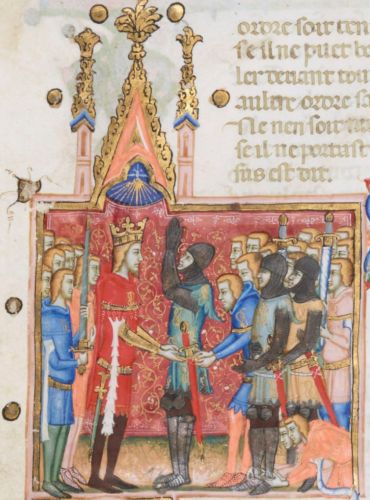 ordre soit ten
se il ne puet bo
ler tenant tou
aultre ordre so
Ne nen soit
se il ne portast
sus est dit.